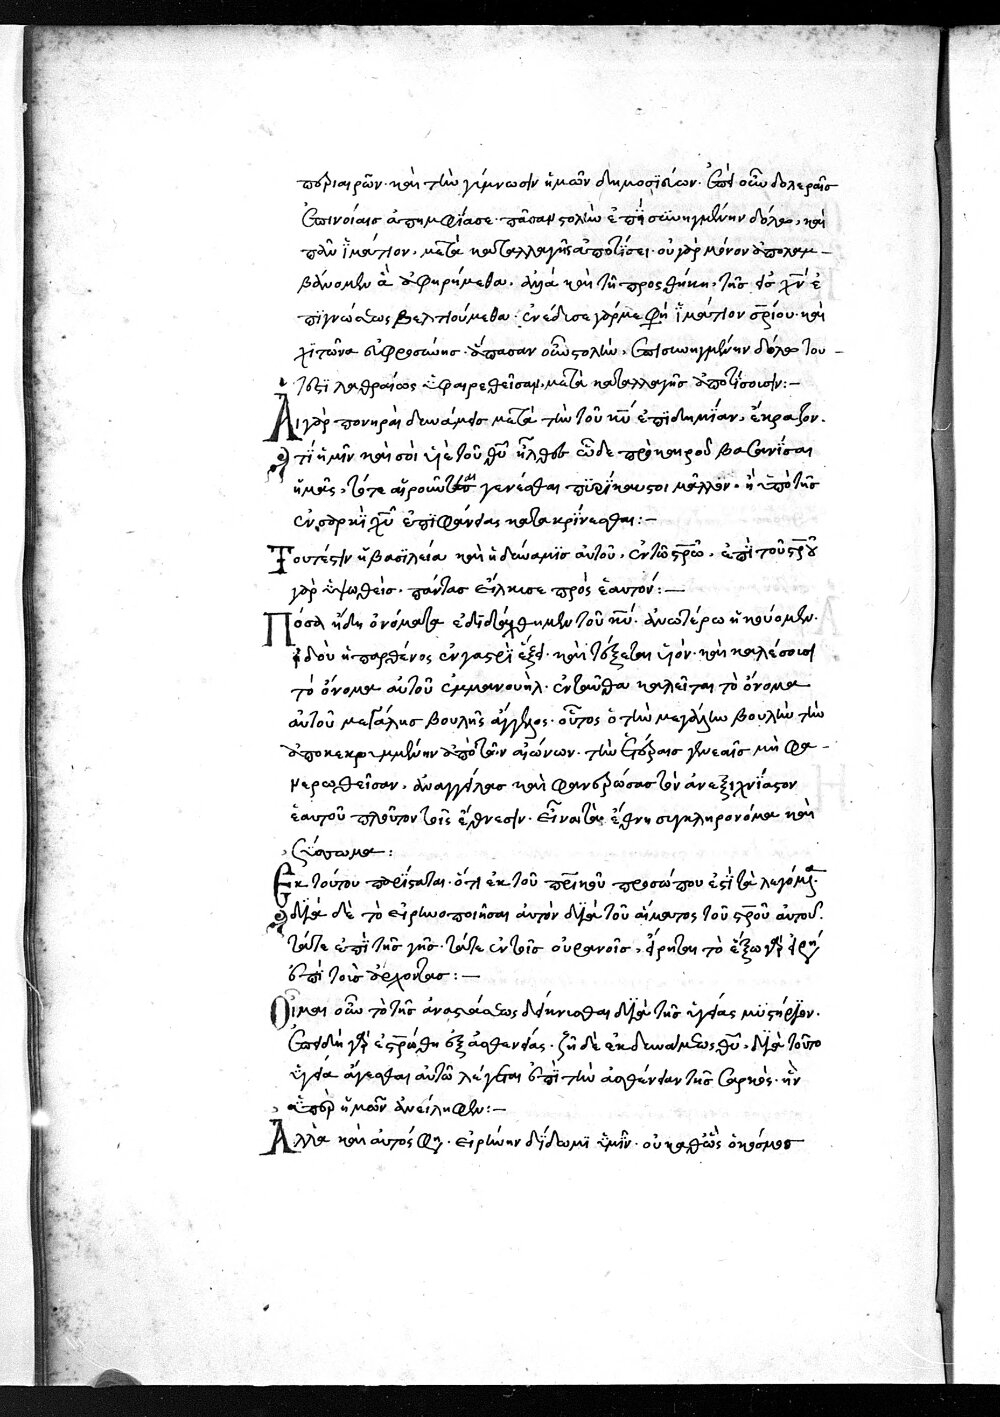 περιαιρῶν· καὶ τὴν γύμνωσιν ἡμῶν δημοσιεύων· ἐπεὶ οὖν δολεραῖς
ἐπινοίαις ἀπημφίασε· πᾶσαν στολὴν ἐπισυνηγμένην δόλω, καὶ
πᾶν ἱμάτιον, μετὰ καταλλαγῆς ἀποτίσει· οὐ γὰρ μόνον ἀπολαμ-
βάνομεν ἃ ἀφηρήμεθα, ἀλλὰ καὶ τῆ προσθήκη, τῆς εἰς χν ἐ
πιγνώσεως βελτιούμεθα· ἐνέδυσε γάρ με φη ἱμάτιον σρίου· καὶ
χιτῶνα εὐφροσύνης· ἅπασαν οὖν στολὴν, ἐπισυνηγμένην δόλω του
τέστι λαθραίως ἀφαιρεθεῖσαν, μετὰ καταλλαγῆς ἀποτίσουσιν:-
Αἱ γὰρ πονηραὶ δυνάμεις μετὰ τὴν τοῦ κυ ἐπιδημίαν, ἔκραζον·
τί ἡμῖν καὶ σοὶ υἱὲ τοῦ θυ ἦλθες ὧδε πρὸ καιροῦ βασανίσαι
ἡμᾶς, τότε αἱροῦνται γενέσθαι πυρίκαυστοι μᾶλλον, ἢ ὑπὸ τῆς
ἐν σαρκὶ χυ ἐπιφανείας κατακρίνεσθαι:-
Τουτέστιν ἡ βασιλεία καὶ ἡ δύναμις αὐτοῦ, ἐν τῶ σρω, ἐπὶ τοῦ σρου
γὰρ ὑψωθεὶς, πάντας εἵλκυσε πρὸς ἑαυτόν:-
Πόσα ἤδη ὀνόματα ἐδιδάχθημεν τοῦ κυ· ἀνωτέρω ἠκούομεν·
ἰδοὺ ἡ παρθένος ἐν γαστρὶ ἕξει· καὶ τέξεται υἱόν· καὶ καλέσουσι
τὸ ὄνομα αὐτοῦ ἐμμανουήλ· ἐνταῦθα καλεῖται τὸ ὄνομα
αὐτοῦ μεγάλης βουλῆς ἄγγελος· οὗτος ὁ τὴν μεγάλην βουλὴν τὴν
ἀποκεκρυμμένην ἀπὸ τῶν αἰώνων· τὴν ἑτέραις γενεαῖς μὴ φα-
νερωθεῖσαν, ἀναγγείλας καὶ φανερώσας τὸν ἀνεξιχνίαστον
ἑαυτοῦ πλοῦτον τοῖς ἔθνεσιν· εἶναι τὰ ἔθνη συγκληρονόμα καὶ
σύσσωμα:
Ἐκ τούτου πορίσαται· ὅτι ἐκ τοῦ πρικοῦ προσώπου ἐστὶ τὰ λεγόμενα·
διὰ δὲ τὸ εἰρηνοποιῆσαι αὐτὸν διὰ τοῦ αἵματος τοῦ σρου αὐτοῦ·
τά τε ἐπὶ τῆς γῆς· τά τε ἐν τοῖς οὐρανοῖς, εἴρηται τὸ ἄξω γὰρ εἰρήνην
ἐπὶ τοὺς ἄρχοντας:-
Οἶμαι οὖν τὸ τῆς ἀναστάσεως διηνιχθαι διὰ τῆς ὑγείας μυστήριον·
ἐπειδὴ γὰρ ἐσρώθη ἐξ ἀσθενείας· ζῆ δὲ ἐκ δυνάμεως θυ, διὰ τοῦτο
ὑγεία ἄγεσθαι αὐτῶ λέγεται ἐπὶ τὴν ἀσθένειαν τῆς σαρκὸς· ἣν
ὑπὲρ ἡμῶν ἀνείληφεν:-
Ἀλλὰ καὶ αὐτός φη· εἰρήνην δίδωμι ὑμῖν· οὐ καθὼς ὁ κόσμος